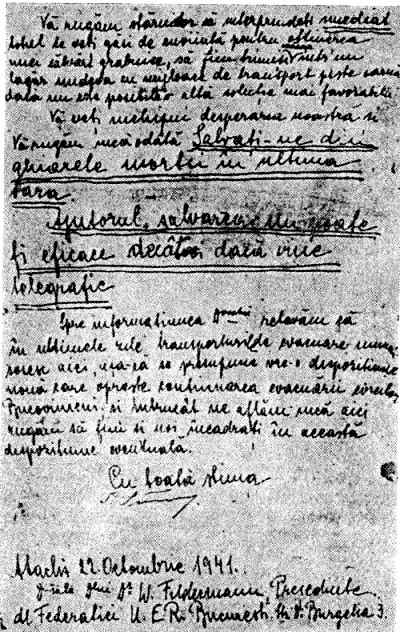 Vă rugăm stăruitor să interprindeți imediat
totul ce veți găsi de cuviință pentru obținerea
unei salvări grabnice, să fim trimiși într'un
lagăr undeva cu mijloace de transport peste
dacă nu este posibilă altă soluție mai favorabilă
Vă veți închipui desperarea noastră și
Vă rugăm încăodată Salvați-ne din
ghiarele morții în ultima
oara.
Ajutorul, salvarea nu poate
fi eficace decât dacă vine
telegrafic
Spre informațiunea Dvoastră relevăm că
în ultimele zile transporturile de evacuare
sosesc aici, așa că se presupune vre-o dispozițiune
nouă care oprește continuarea evacuării evreilor
Bucovineni, și întrucât ne aflăm încă aici
rugăm să fim și noi încadrați în această
dispozițiune eventuală.
Cu toată stima
Atachi 22 Octombrie 1941.
Dr W. Fildermann, Președinte
al Federației U.E.R. București. Str. Dr. Burghelea 3.